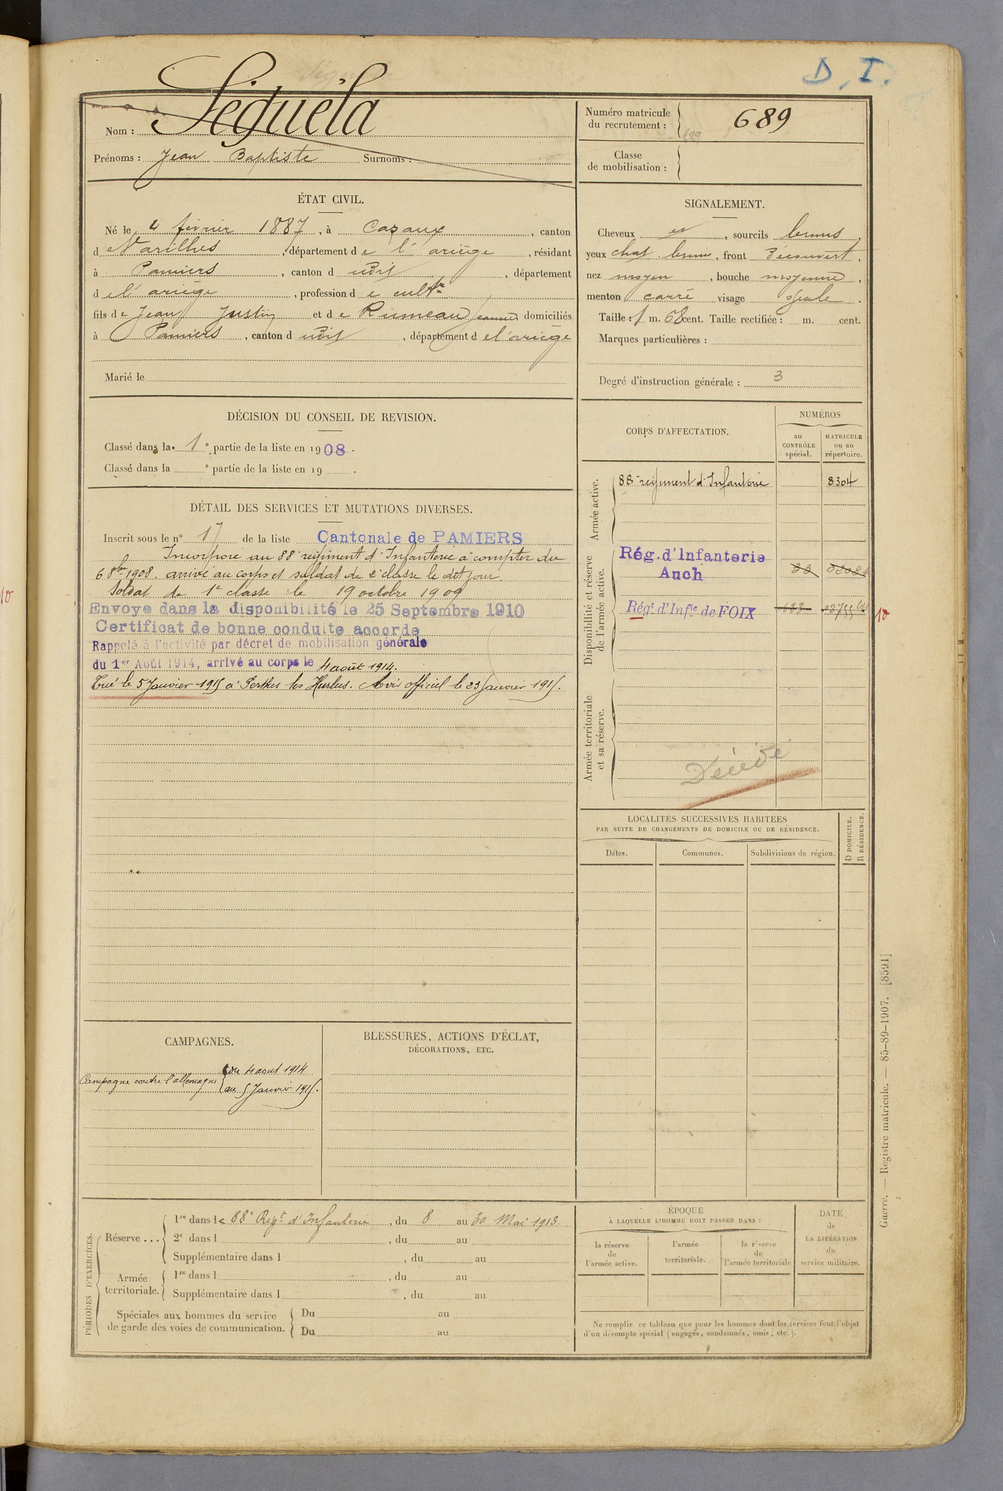 D. I.
Nom : Séguéla
Prénoms : Jean Baptiste Surnoms :
Numéro matricule
du recrutement : 689
Classe
de mobilisation :
ÉTAT CIVIL.
Né le 4 février 1887, à Cazaux, canton
d e Varilhes, département d e l'ariège, résidant
à Pamiers, canton d udit, département
d e l'ariège, profession d e cultr
fils d e Jean Justin et d e Rumeau Jeanne domiciliés
à Pamiers, canton d udit, département d e l'ariège
Marié le
SIGNALEMENT.
Cheveux et, sourcils bruns
yeux chat. bruns, front découvert,
nez moyen, bouche moyenne,
menton carré visage ovale.
Taille : 1 m. 68 cent. Taille rectifiée : m. cent.
Marques particulières :
Degré d'instruction générale : 3
DÉCISION DU CONSEIL DE REVISION.
Classé dans la 1e partie de la liste en 1908.
Classé dans la e partie de la liste en 19 .
DÉTAIL DES SERVICES ET MUTATIONS DIVERSES.
Inscrit sous le n° 17 de la liste Cantonale de PAMIERS
Incorporé au 88e régiment d'Infanterie à compter du
6 8bre 1908. arrivé au corps et soldat de 2e classe le dit jour.
Soldat de 1e classe le 19 octobre 1909
Envoyé dans la disponibilité le 25 Septembre 1910
Certificat de bonne conduite accordé
Rappelé à l'activité par décret de mobilisation générale
du 1er Août 1914, arrivé au corps le 4 août 1914.
Tué le 5 Janvier 1915 à Perthes les Hurlus. Avis officiel le 23 Janvier 1915.
CORPS D'AFFECTATION.
NUMÉROS
au
CONTRÔLE
spécial.
MATRICULE
ou au
répertoire.
Armée active.
88e régiment d'Infanterie 8304
Disponibilité et réserve
de l'armée active.
Rég. d'Infanterie
Auch
Régt d'Infie de FOIX
10
10
Armée territoriale
et sa réserve.
Décédé
LOCALITÉS SUCCESSIVES HABITÉES
PAR SUITE DE CHANGEMENTS DE DOMICILE OU DE RÉSIDENCE.
Dates. Communes. Subdivisions de région.
D DOMICILE.
R RÉSIDENCE.
CAMPAGNES.
Campagne contre l'allemagne du 4 août 1914
au 5 Janvier 1915.
BLESSURES, ACTIONS D'ÉCLAT,
DÉCORATIONS, ETC.
PÉRIODES D'EXERCICES.
Réserve ...
1re dans le 88e Regt d'Infanterie, du 8 au 30 Mai 1913.
2e dans l , du au
Supplémentaire dans l , du au
Armée
territoriale.
1re dans l , du au
Supplémentaire dans l , du au
Spéciales aux hommes du service
de garde des voies de communication.
Du au
Du au
ÉPOQUE
À LAQUELLE L'HOMME DOIT PASSER DANS :
la réserve
de
l'armée active.
l'armée
territoriale.
la réserve
de
l'armée territoriale
DATE
de
LA LIBÉRATION
du
service militaire.
Ne remplir ce tableau que pour les hommes dont les services font l'objet
d'un décompte spécial (engagés, condamnés, omis, etc.).
Guerre. — Registre matricule. — 85-89-1907. [8591]